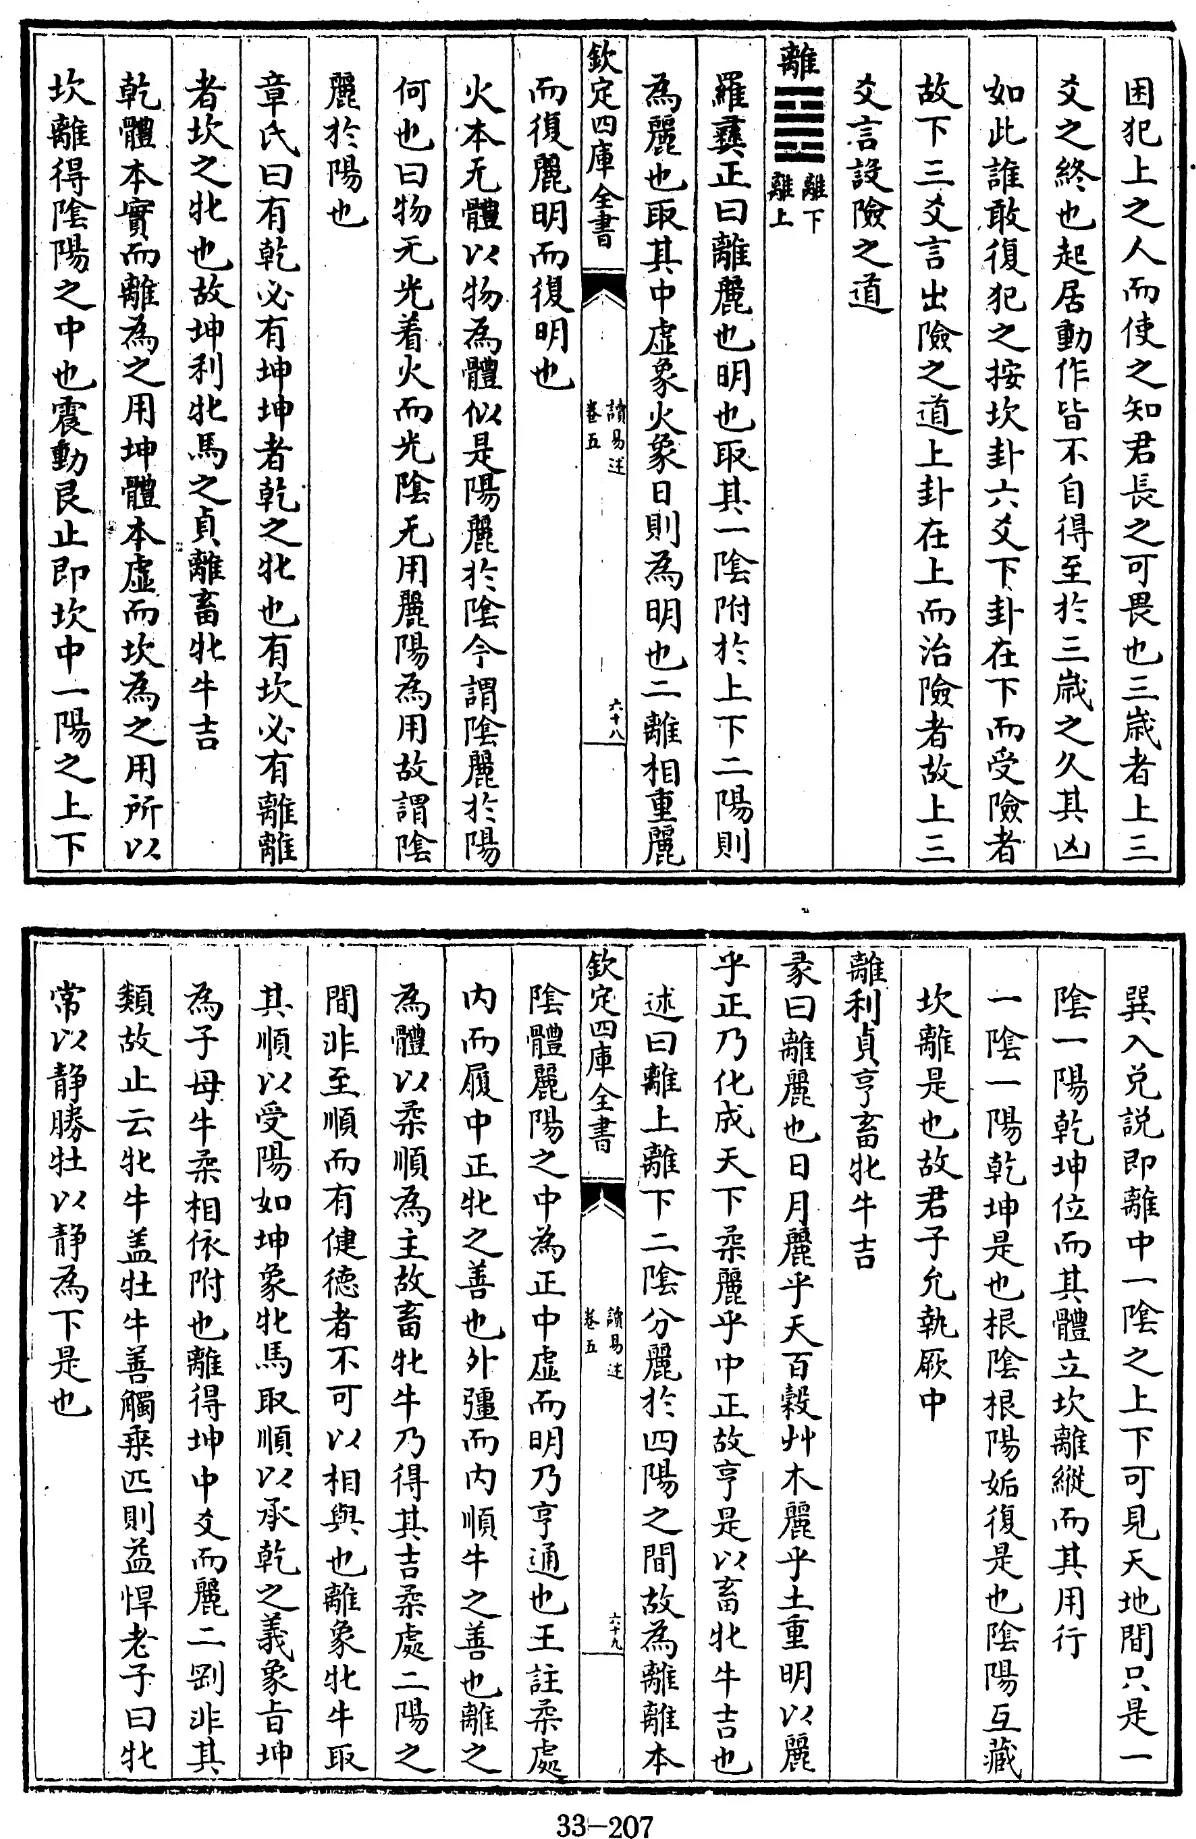 困犯上之人而使之知君長之可畏也三歲者上三
爻之終也起居動作皆不自得至於三歲之久其凶
如此誰敢復犯之按坎卦六爻下卦在下而受險者
故下三爻言出險之道上卦在上而治險者故上三
爻言設險之道
離䷝離下離上
羅彞正曰離麗也明也取其一陰附於上下二陽則
為麗也取其中虛象火象日則為明也二離相重麗
欽定四庫全書
讀易述
卷五
六十八
而復麗明而復明也
火本无體以物為體似是陽麗於陰今謂陰麗於陽
何也曰物无光着火而光陰无用麗陽為用故謂陰
麗於陽也
章氏曰有乾必有坤坤者乾之牝也有坎必有離離
者坎之牝也故坤利牝馬之貞離畜牝牛吉
乾體本實而離為之用坤體本虛而坎為之用所以
坎離得陰陽之中也震動艮止即坎中一陽之上下
巽入兌說即離中一陰之上下可見天地間只是一
陰一陽乾坤位而其體立坎離縱而其用行
一陰一陽乾坤是也根陰根陽姤復是也陰陽互藏
坎離是也故君子允執厥中
離利貞亨畜牝牛吉
彖曰離麗也日月麗乎天百穀艸木麗乎土重明以麗
乎正乃化成天下柔麗乎中正故亨是以畜牝牛吉也
述曰離上離下二陰分麗於四陽之間故為離離本
欽定四庫全書
讀易述
卷五
六十九
陰體麗陽之中為正中虛而明乃亨通也王註柔處
内而履中正牝之善也外彊而内順牛之善也離之
為體以柔順為主故畜牝牛乃得其吉柔處二陽之
間非至順而有健德者不可以相與也離象牝牛取
其順以受陽如坤象牝馬取順以承乾之義象旨坤
為子母牛柔相依附也離得坤中爻而麗二剛非其
類故止云牝牛盖牡牛善觸乗匹則益悍老子曰牝
常以静勝牡以静為下是也
33-207